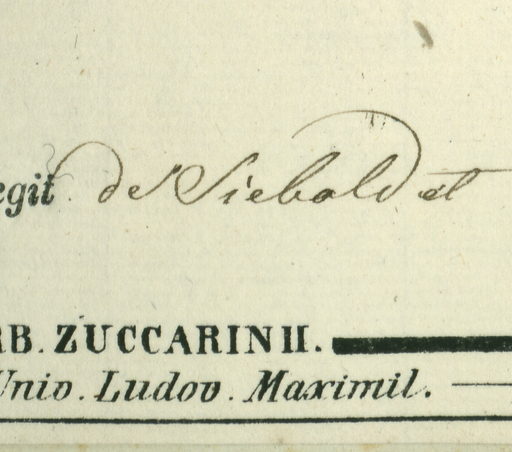 egit de Siebold et
RB. ZUCCARINII.
Univ. Ludov. Maximil.